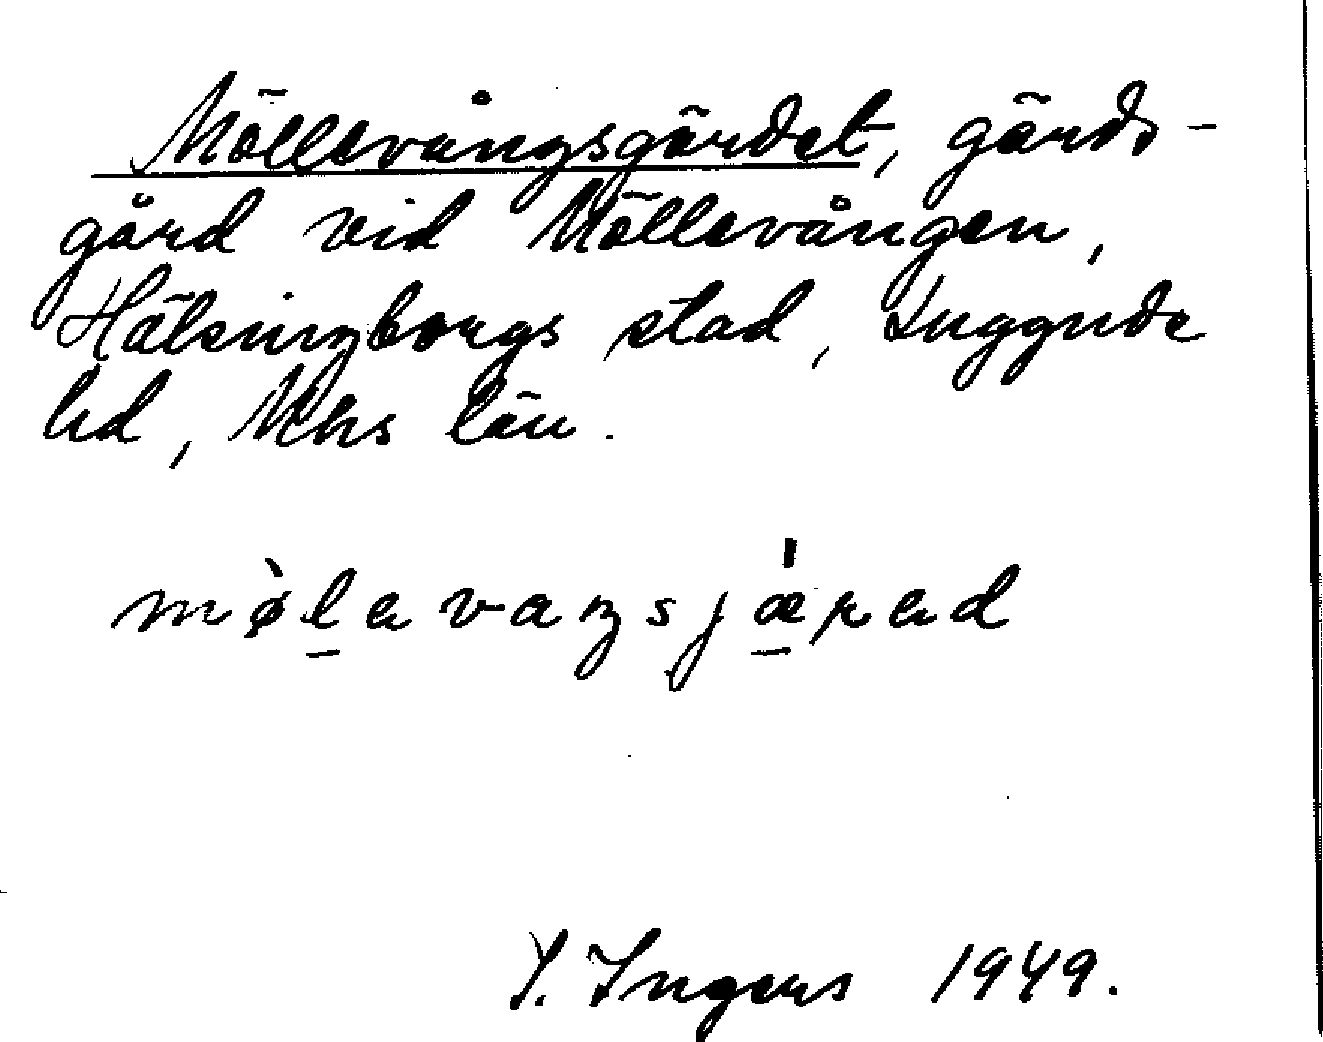 Möllevångsgärdet, gärds-
gård vid Möllevången,
Hälsingborgs stad, Luggude
hd, Mhs län.
mø̀l̠avaŋsjǽ̠rad
I. Ingers 1949.